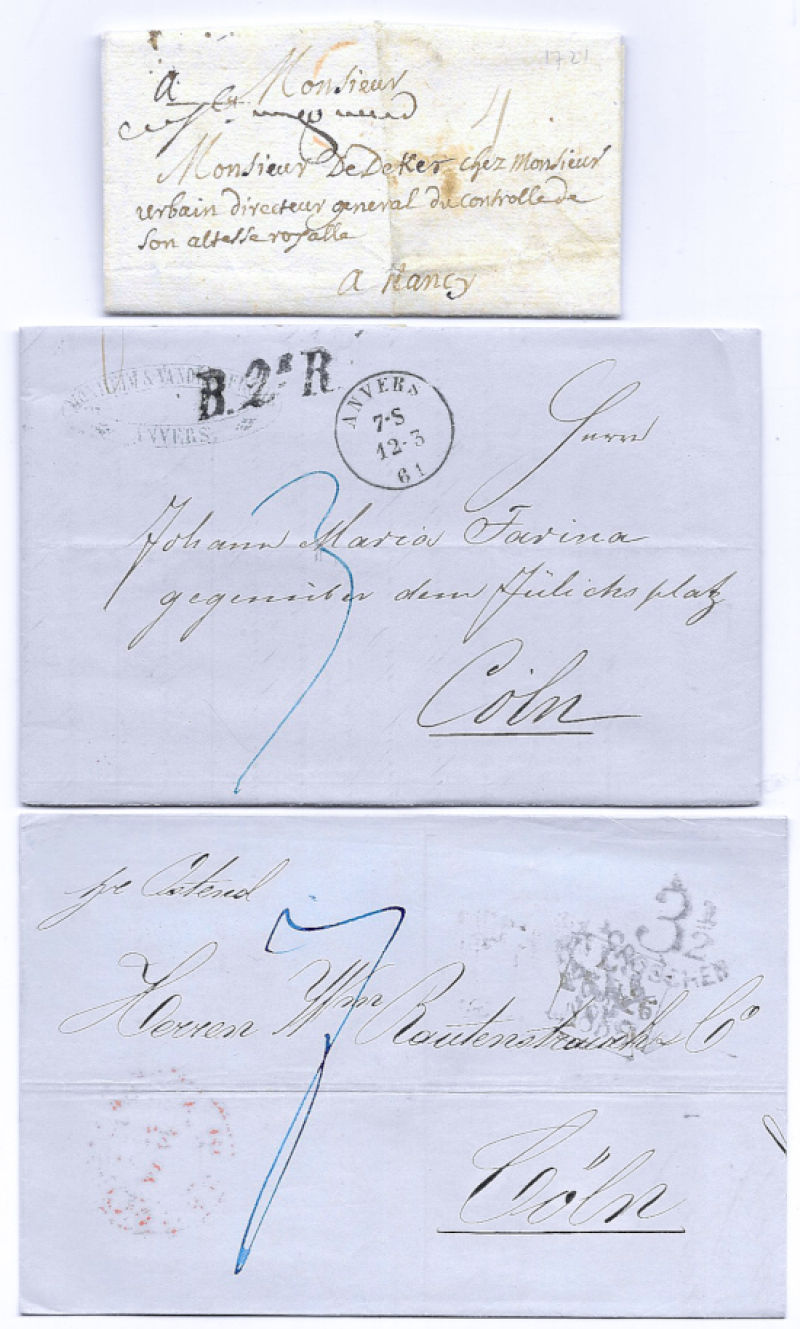 1721
a Monsieur
4
Monsieur De Deker chez Monsieur
verbain directeur general du controlle de
son altesse royalle
a Nancy
& VAN
ANVERS
B. 2ᴿ R
ANVERS
7-S
12-3
61
Herrn
3
Johann Maria Farina
gegenüber dem Jülichsplatz
Cöln
pr Ostend
3 1/2
GROSCHEN
7
Herren Wm Rautenstrauch & Co
Cöln